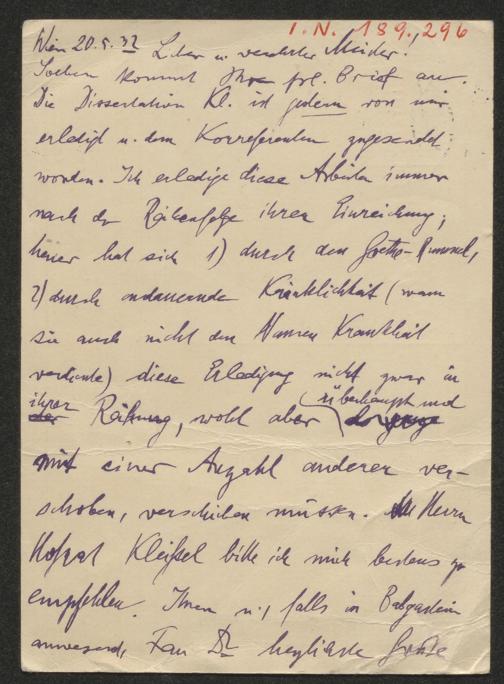 I. N. 189.296
Wien 20.5.32 Lieber u. verehrter Meister!
Soeben kommt Ihr frl. Brief an.
Die Dissertation Kl. ist gestern von mir
erledigt u. dem Korreferenten zugesendet
worden. Ich erledige diese Arbeiten immer
nach der Reihenfolge ihrer Einreichung;
heuer hat sich 1) durch den Goethe-Rummel,
2) durch andauernde Kränklichkeit (wenn
sie auch nicht den Namen Krankheit
verdiente) diese Erledigung nicht zwar in
ihrer Reihung, wohl aber überhaupt und
mit einer Anzahl anderer ver-
schoben, verschieben müssen. Herrn
Hofrat Kleißel bitte ich mich bestens zu
empfehlen. Ihnen u., falls in Badgastein
anwesend, Frau Dr herzlichste Grüße